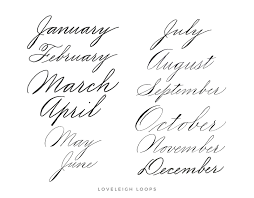 January
February
March
April
May
June
July
August
September
October
November
December
LOVELEIGH LOOPS